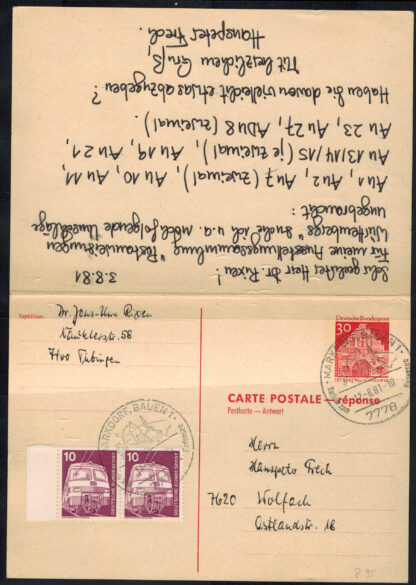 3.8.81
Sehr geehrter Herr Dr. Rixen!
Für meine Ausstellungssammlung "Postanweisungen
Württembergs" suche ich u.a. noch folgende Umschläge
ungebraucht:
Au 1, Au 2, Au 7 (zweimal), Au 10, Au 11,
Au 13/14/15 (je zweimal), Au 19, Au 21,
Au 23, Au 27, ADU 8 (zweimal).
Haben Sie davon vielleicht etwas abzugeben?
Mit herzlichem Gruß,
Hanspeter Frech.
Expéditeur:
Dr. Jens-Uwe Rixen
58
7400 Tübingen
Deutsche Bundespost
30
MARKDORF, BADEN 1
12.-8.81-10
7778
CARTE POSTALE – réponse
Postkarte – Antwort
MARKDORF, BADEN 1
10
DEUTSCHE BUNDESPOST
10
DEUTSCHE BUNDESPOST
Herrn
Hanspeter Frech
7620 Wolfach
Ostlandstr. 16